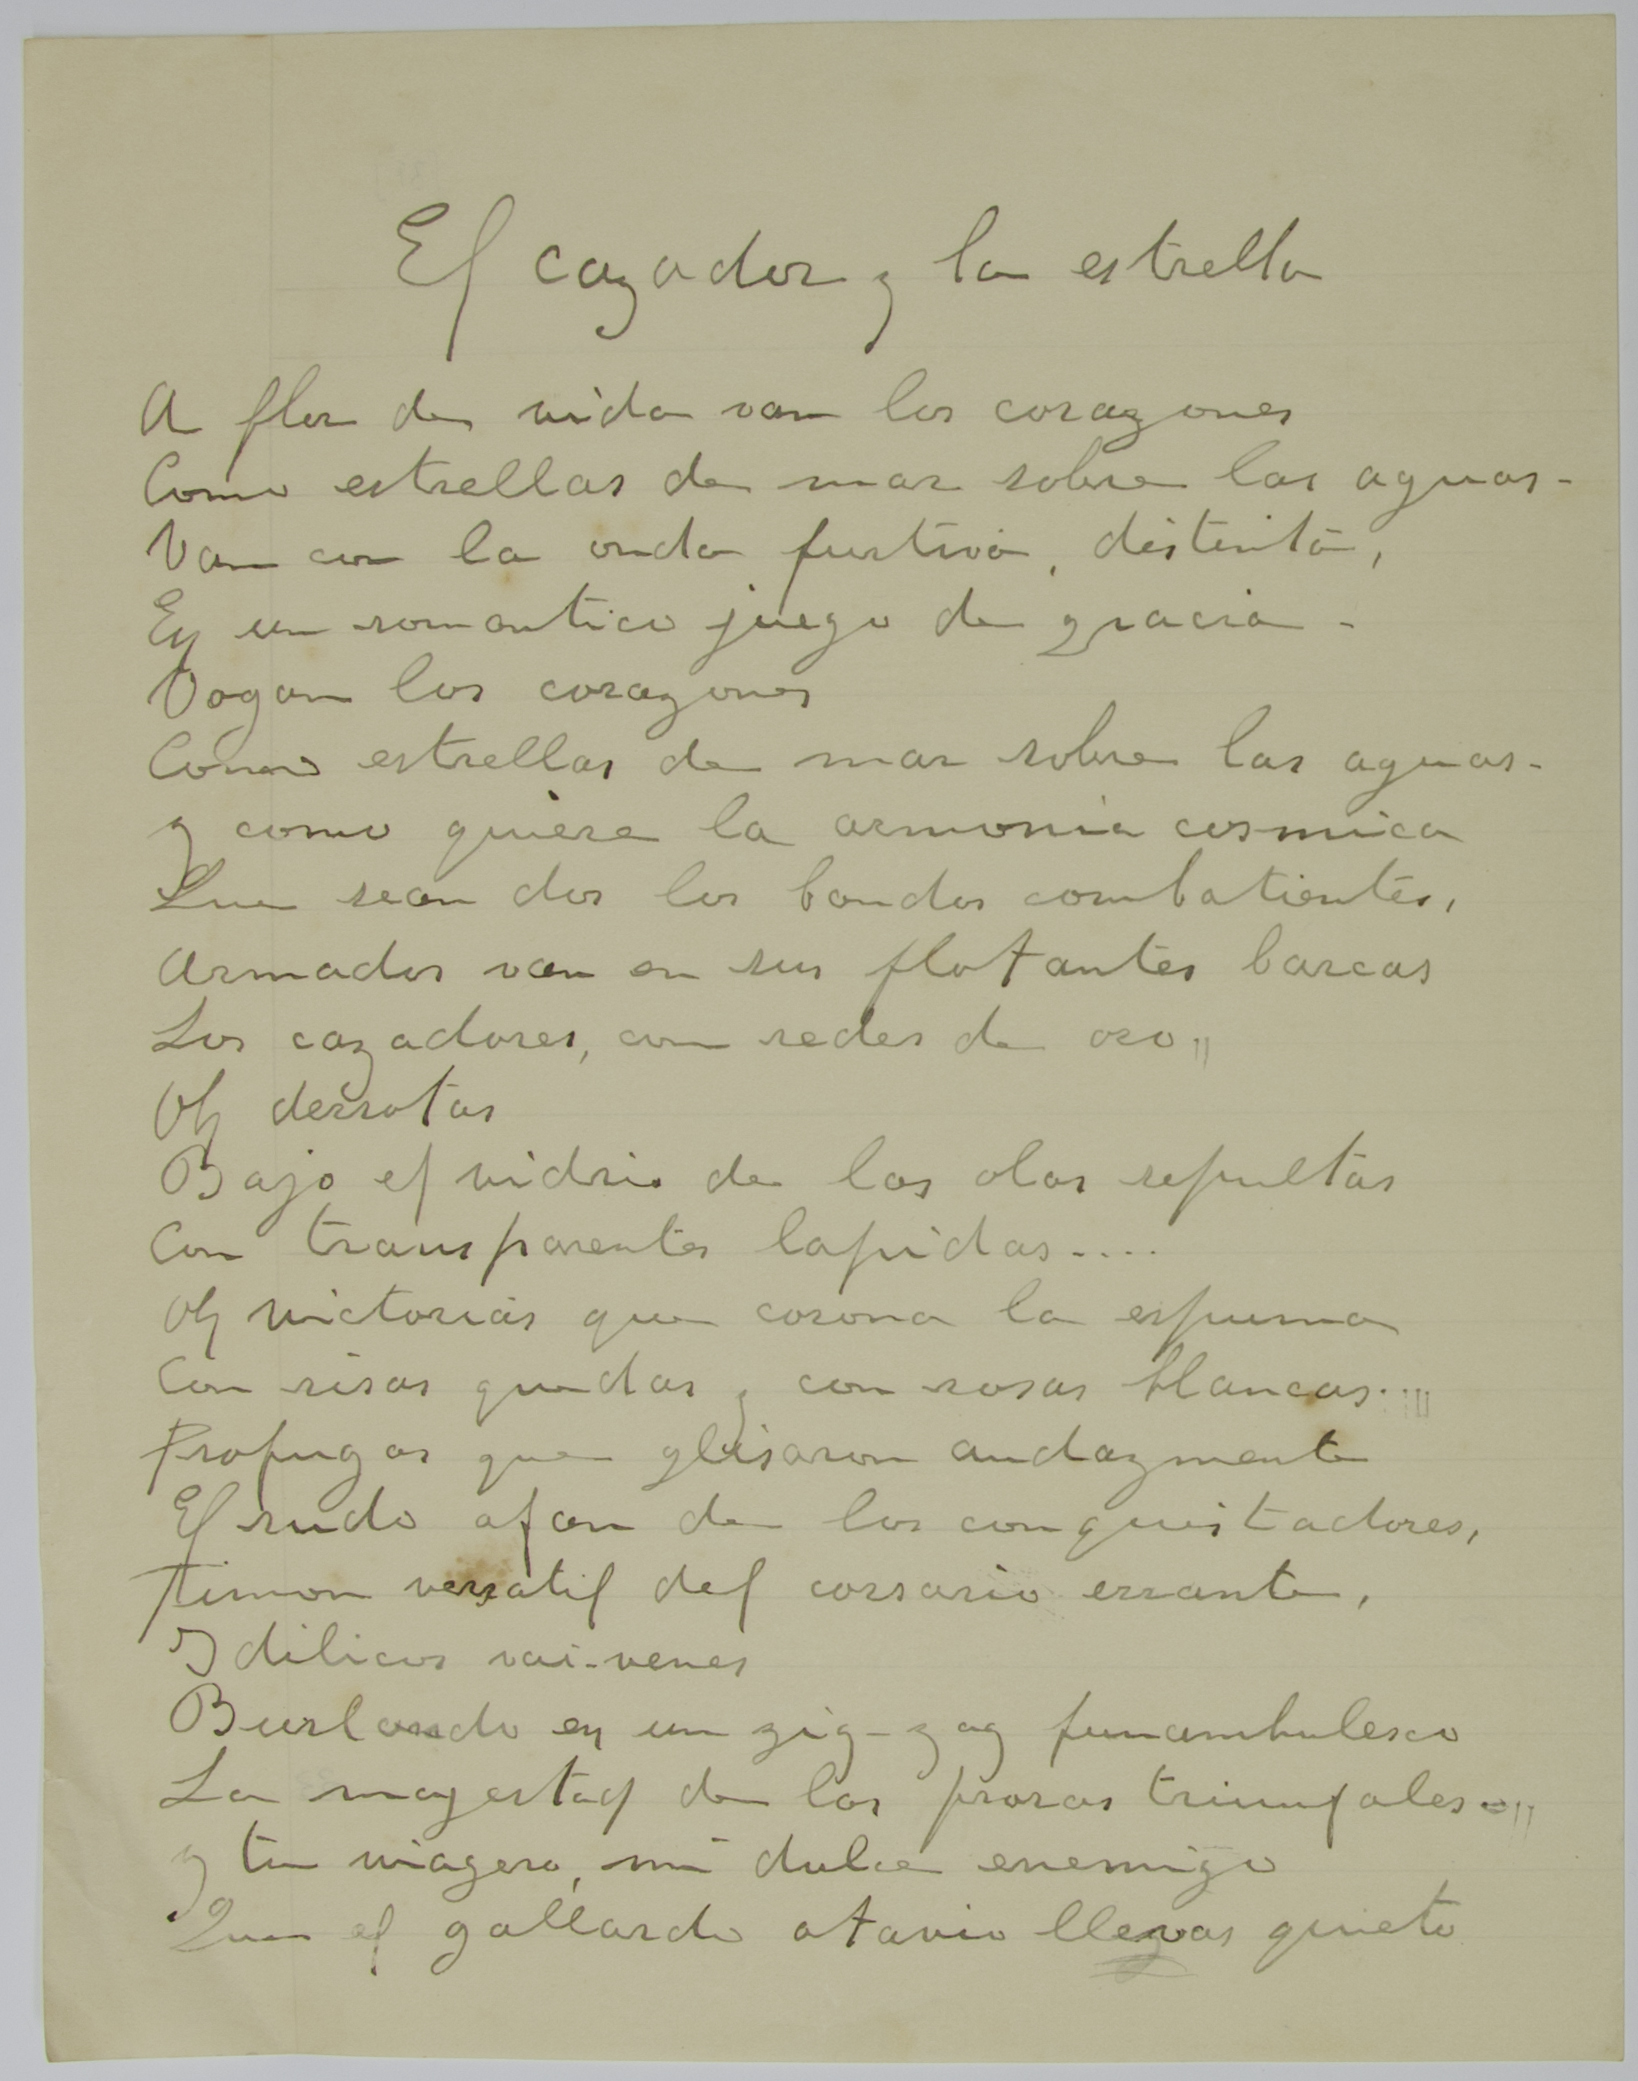 El cazador y la estrella
A flor de vida van los corazones
Como estrellas de mar sobre las aguas-
Van con la onda furtiva, distinta,
En un romantico juego de gracia-
Vogan los corazones
Como estrellas de mar sobre las aguas-
y como quiere la armonia cosmica
Que sean dos los bandos combatientes,
Armados van en sus flotantes barcas
Los cazadores, con redes de oro,,
Oh derrotas
Bajo el vidrio de las olas sepultas
Con transparentes lapidas....
Oh victorias que corona la espuma
Con risas quedas y con rosas blancas...
Profugas que glisaron audazmente
El rudo afan de los conquistadores,
Timon versatil del corsario errante,
Idilicos vai-venes
Burlando en un zig-zag funambulesco
La magestad de las proras triunfales-
y tu viagero, mi dulce enemigo
Que el gallardo atavio llevas quieto